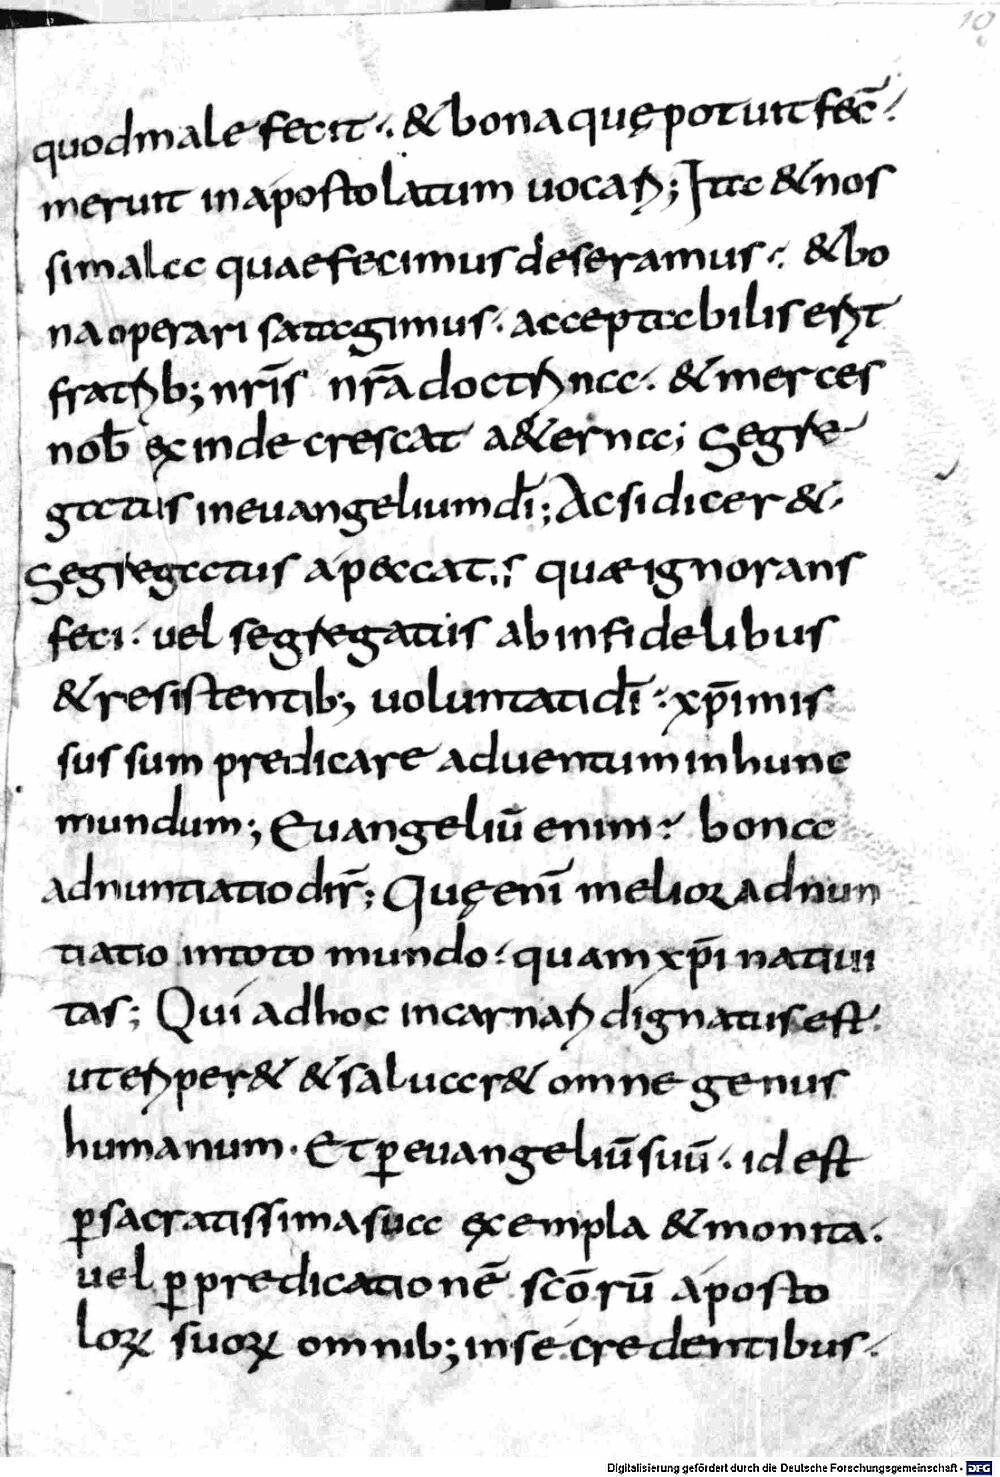 10
quod male fecit · & bona quę potuit fec̄ ·
meruit in apostolatum uocar̄ ; Ita & nos
si mala quae fecimus deseramus · & bo
na operari satagimus · acceptabilis er̄t
fratr̄b; nr̄is nr̄a doctr̄na · & merces
nob̄ exinde crescat a&erna ; Segre
gatus in euangelium dī ; Ac si dicer& ·
Segregatus a peccatis quae ignorans
feci · uel segregatus ab infidelibus
& resistentib; uoluntati dī · xp̄i mis
sus sum predicare aduentum in hunc
mundum ; Euangeliū enim · bona
adnuntiatio dr̄ ; Quę enī melior adnun
tiatio in toto mundo · quam xp̄i natiui
tas ; Qui ad hoc incarnar̄ dignatus est ·
ut er̄per& & saluar& omne genus
humanum · Et ꝑ euangeliū suū · id est
ꝑ sacratissima sua exempla & monita ·
uel ꝑ predicationē sc̄orū aposto
loꝝ suoꝝ omnib; in se credentibus ·
Digitalisierung gefördert durch die Deutsche Forschungsgemeinschaft - DFG